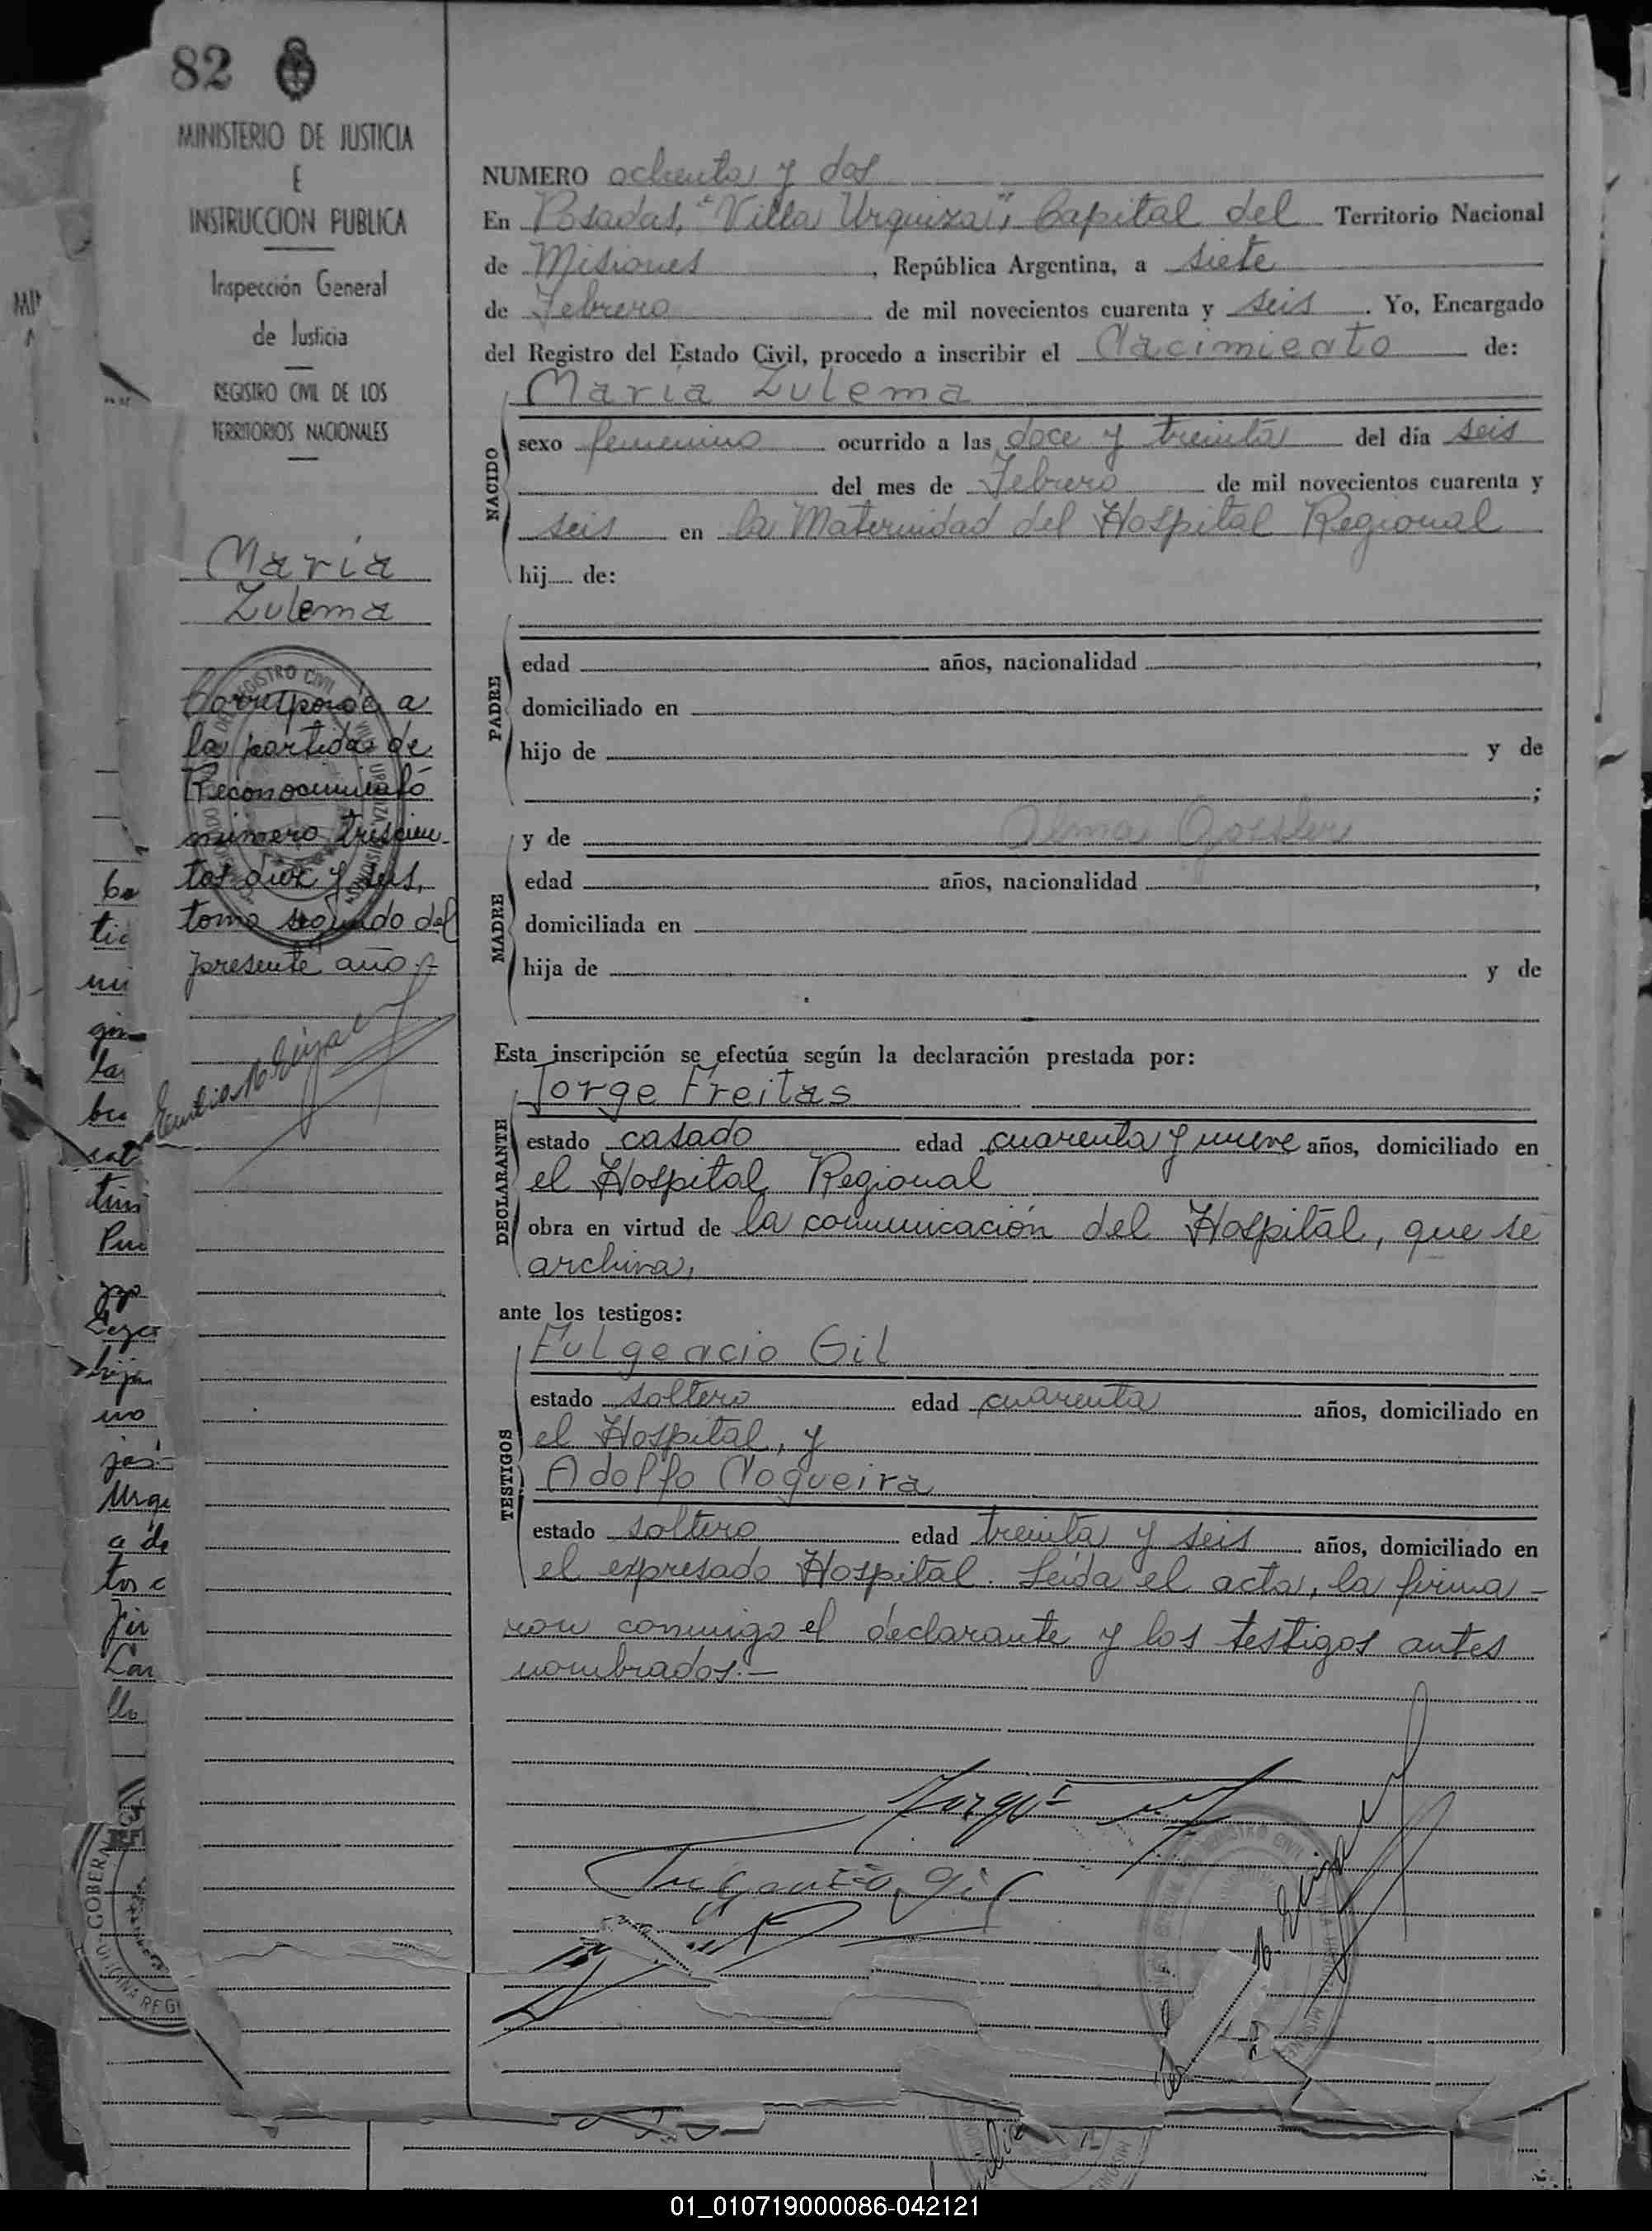 82
MINISTERIO DE JUSTICIA
E
INSTRUCCION PUBLICA
Inspección General
de Justicia
REGISTRO CIVIL DE LOS
TERRITORIOS NACIONALES
María
Zulema
Corresponde a
la partida de
Reconocimiento
número trescien-
tos diez y seis,
tomo segundo del
presente año.-
NUMERO ochenta y dos
En Posadas, "Villa Urquiza", Capital del Territorio Nacional
de Misiones, República Argentina, a siete
de Febrero de mil novecientos cuarenta y seis. Yo, Encargado
del Registro del Estado Civil, procedo a inscribir el Nacimiento de:
María Zulema
NACIDO
sexo femenino ocurrido a las doce y treinta del día seis
del mes de Febrero de mil novecientos cuarenta y
seis en la Maternidad del Hospital Regional
hij de:
PADRE
edad años, nacionalidad ,
domiciliado en
hijo de y de
;
MADRE
y de Alma
edad años, nacionalidad ,
domiciliada en
hija de y de
Esta inscripción se efectúa según la declaración prestada por:
Jorge Freitas
DECLARANTE
estado casado edad cuarenta y nueve años, domiciliado en
el Hospital Regional
obra en virtud de la comunicación del Hospital, que se
archiva,
ante los testigos:
Fulgencio Gil
TESTIGOS
estado soltero edad cuarenta años, domiciliado en
el Hospital, y
Adolfo Nogueira
estado soltero edad treinta y seis años, domiciliado en
el expresado Hospital. Leída el acta, la firma-
ron conmigo el declarante y los testigos antes
nombrados.-
01_010719000086-042121